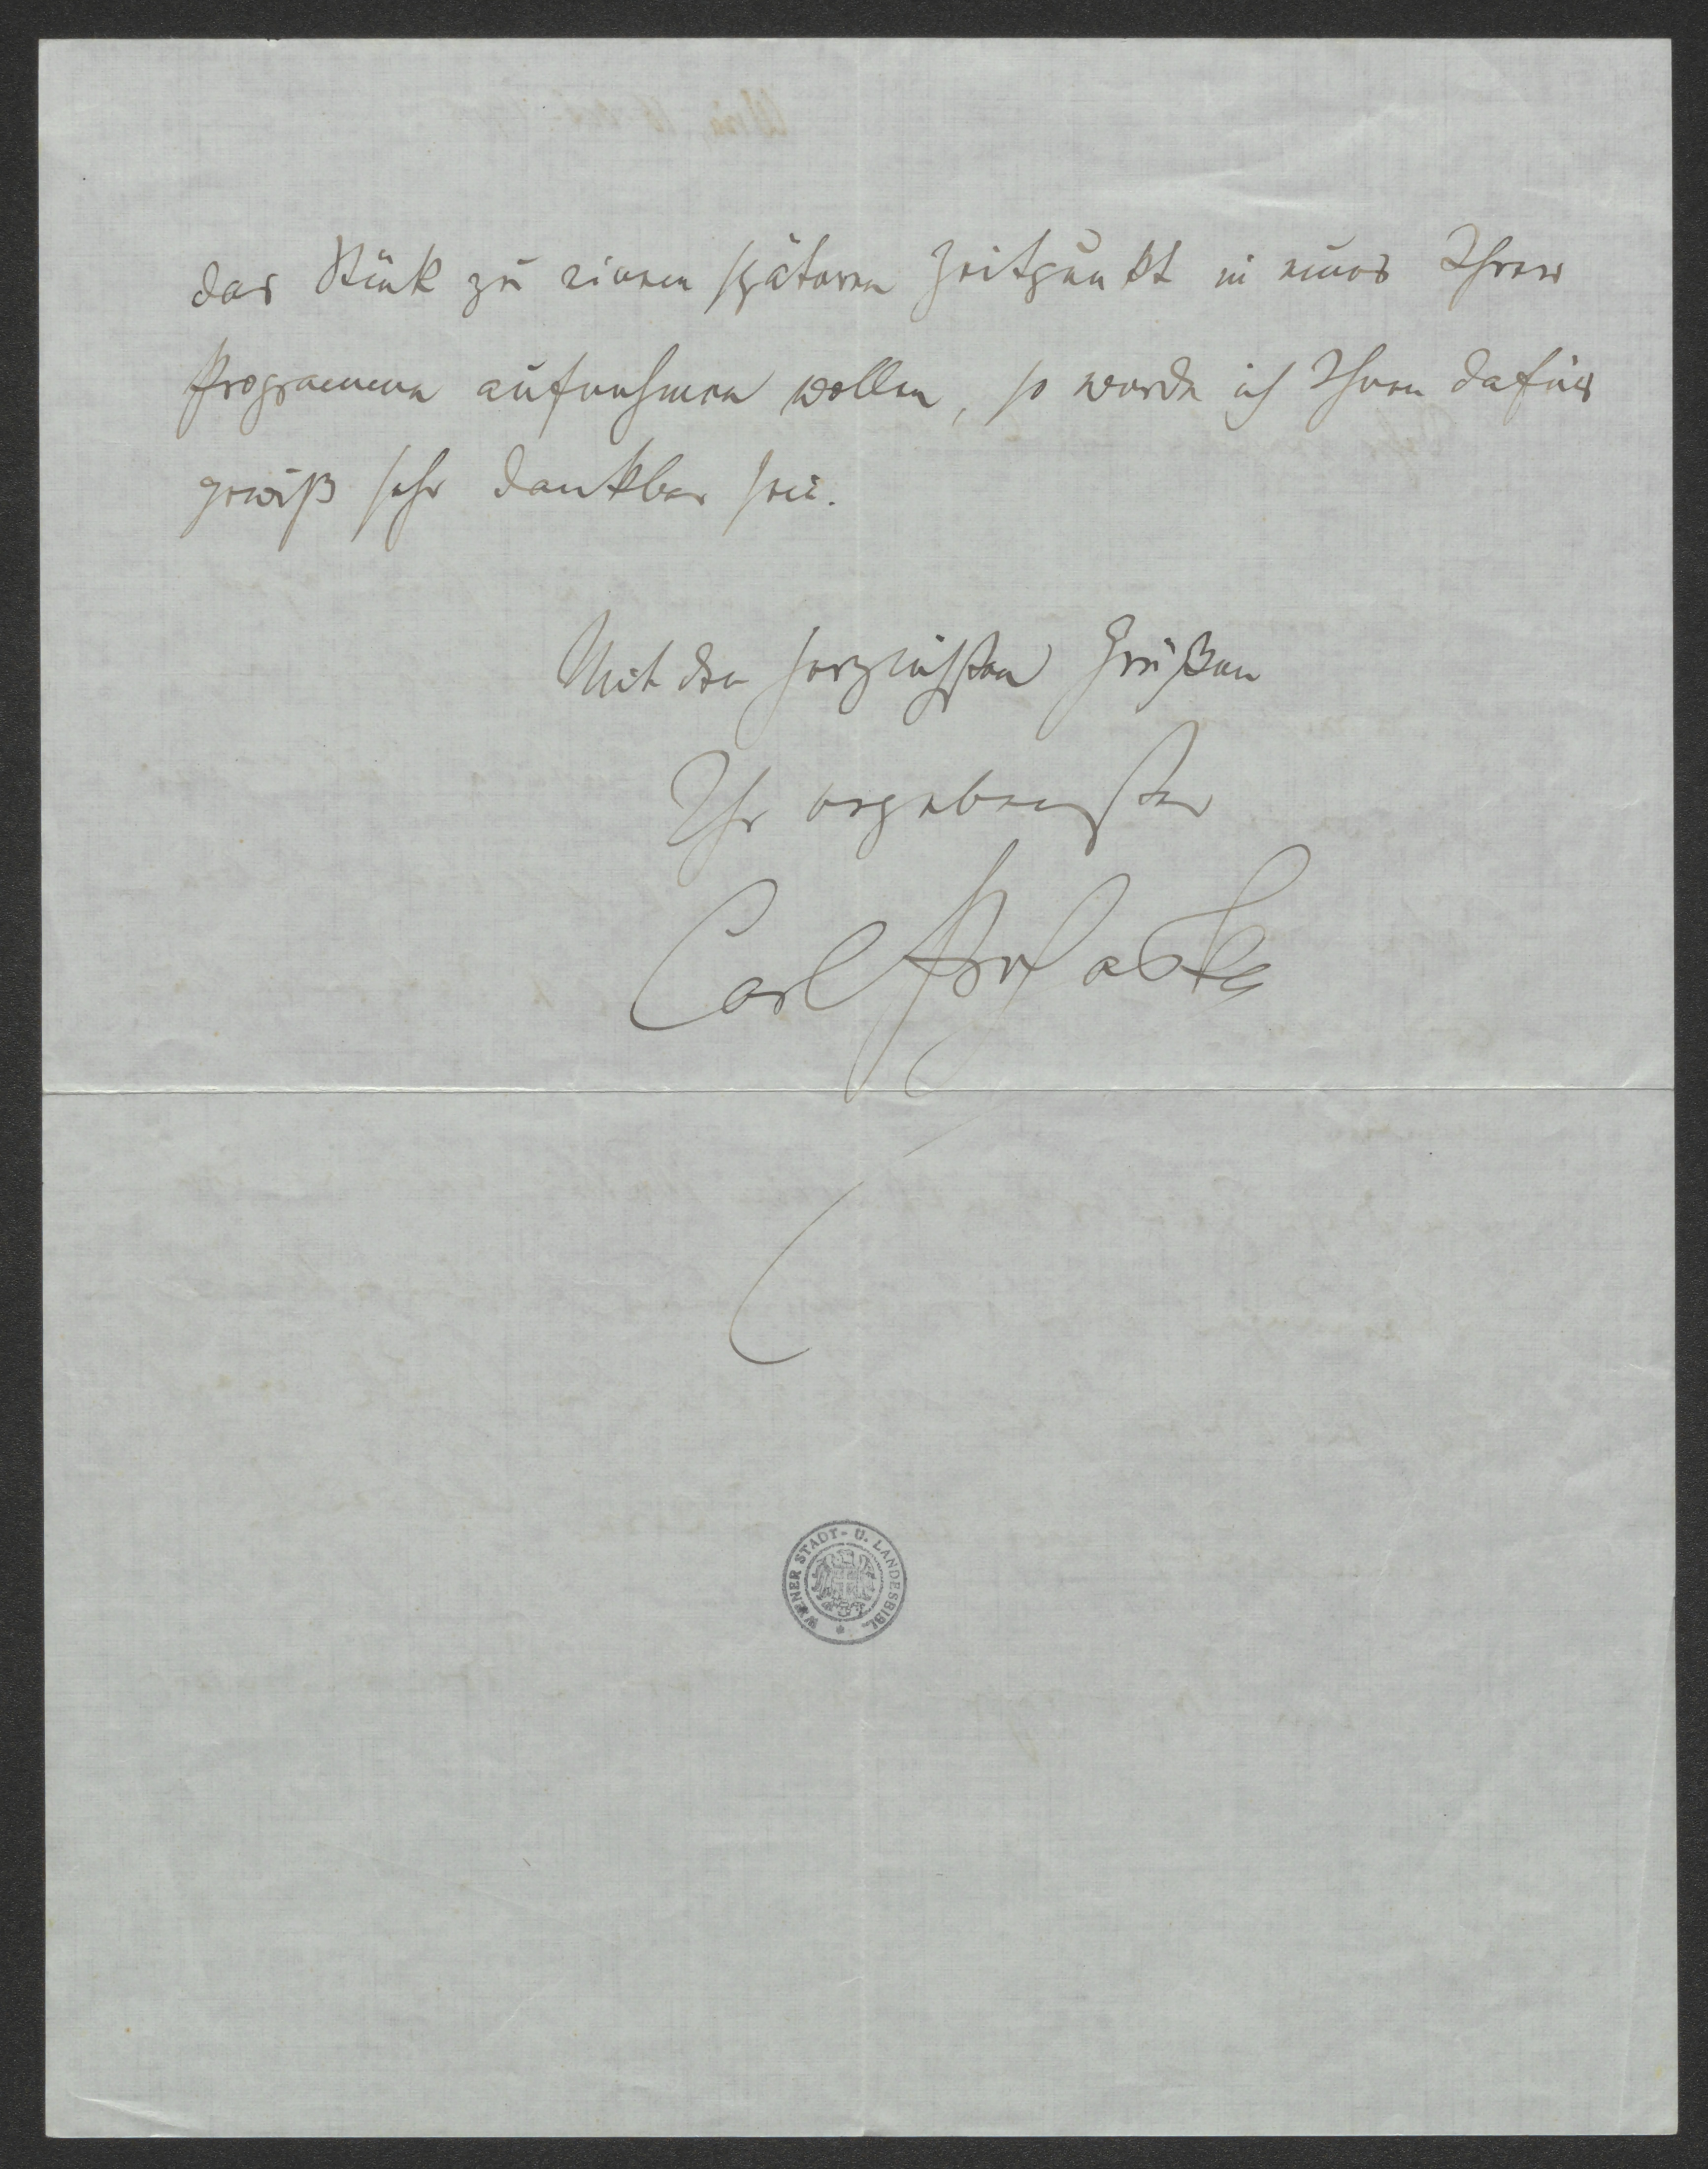 das Stück zu einem späteren Zeitpunkt in eines Ihrer
Programme aufnehmen wollen, so werde ich Ihnen dafür
gewiß sehr dankbar sein.
Mit den herzlichsten Grüßen
Ihr ergebenster
Carl Prohaska
WIENER STADT- U. LANDESBIBL.